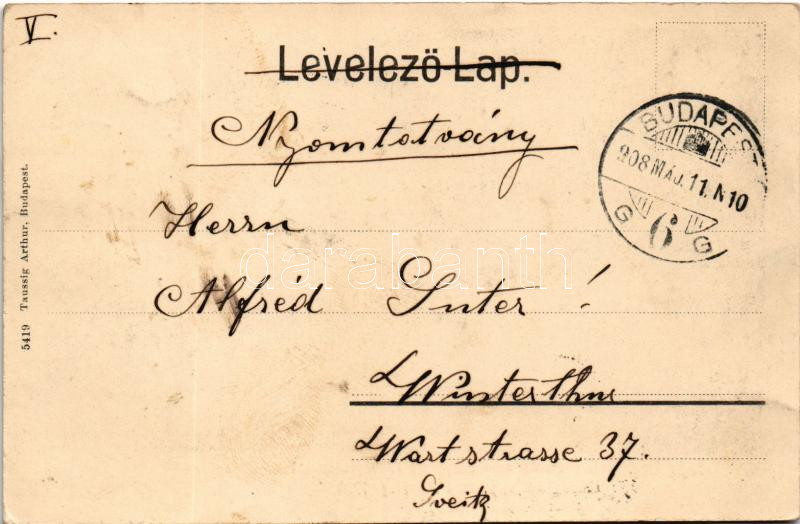 V.
Levelező-Lap.
Nyomtatvány
BUDAPEST
908 MÁJ. 11. N10
G 6 G
Herrn
Alfréd Suter!
Winterthur
Wartstrasse 37.
Sveitz
5419 Taussig Arthur, Budapest.
darabanth